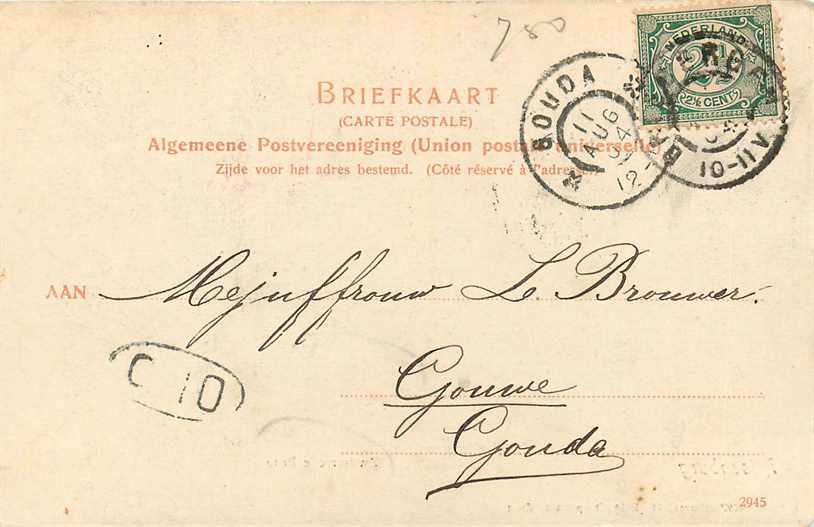 780
NEDERLAND
2½
2½ CENT
GOUDA
11 AUG 04
12
10-11V
BRIEFKAART
(CARTE POSTALE)
Algemeene Postvereeniging (Union postale universelle)
Zijde voor het adres bestemd. (Côté réservé à l'adresse)
AAN Mejuffrouw L. Brouwer.
C 10
Gouwe
Gouda
2945